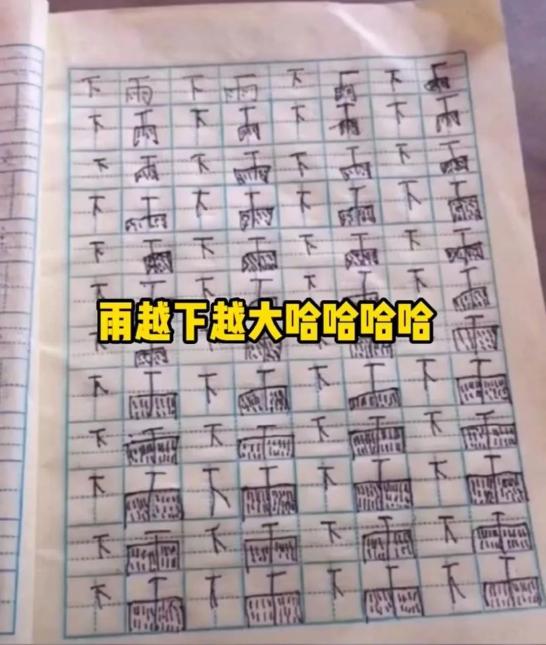 下 雨 下 雨 下 雨 下 雨
下 雨 下 雨 下 雨 下 雨
下 雨 下 雨 下 雨 下 雨
下 雨 下 雨 下 雨 下 雨
下 雨 下 雨 下 雨 下 雨
下 雨 下 雨 下 雨 下 雨
雨越下越大哈哈哈哈
下 雨 下 雨 下 雨 下 雨
下 雨 下 雨 下 雨 下 雨
下 雨 下 雨 下 雨 下 雨
下 雨 下 雨 下 雨 下 雨
下 雨 下 雨 下 雨 下 雨